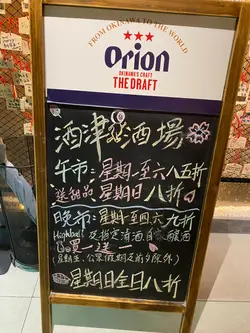 FROM OKINAWA TO THE WORLD
Orion
OKINAWA'S CRAFT
THE DRAFT
酒津 酒場
午市：星期一至六八五折
送甜品 星期日八折
晚市：星期一至四六九折
Highball 及指定清酒 自家釀酒
買一送一
(星期五、公眾假期及前夕除外)
星期日全日八折